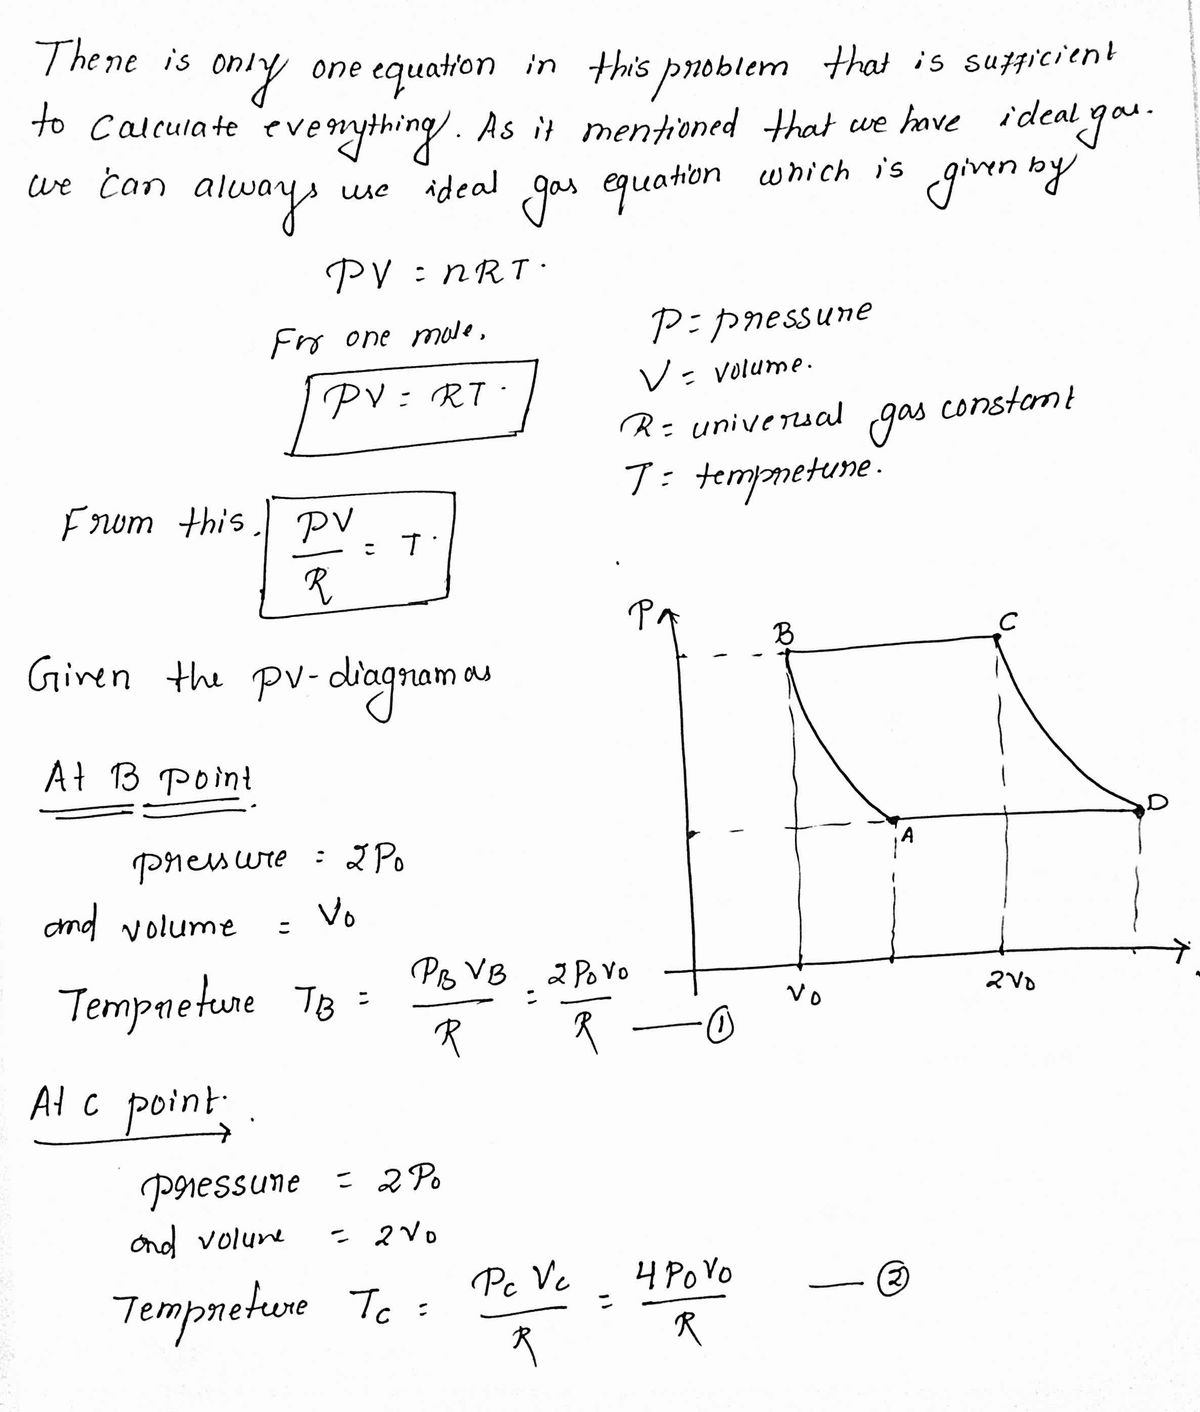 There is only one equation in this problem that is sufficient
to calculate everything. As it mentioned that we have ideal gas.
we can always use ideal gas equation which is given by
PV = nRT.
For one mole.
PV = RT.
P = pressure
V = volume.
R = universal gas constant
T = tempreture.
From this. PV/R = T.
Given the PV-diagram as
P
B
C
A
D
V0
2V0
At B point.
pressure = 2P0
and volume = V0
Tempreture TB = PB VB / R = 2P0V0 / R — ①
At C point.
pressure = 2P0
and volune = 2V0
Tempreture TC = PC VC / R = 4P0V0 / R — ②